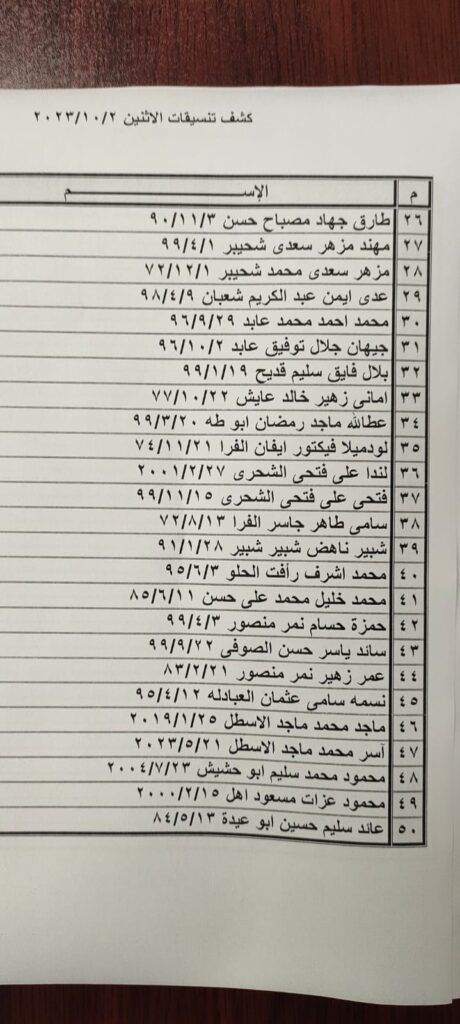 كشف تنسيقات الاثنين ٢٠٢٣/١٠/٢
م الإســـــــم
٢٦ طارق جهاد مصباح حسن ٩٠/١١/٣
٢٧ مهند مزهر سعدى شحيبر ٩٩/٤/١
٢٨ مزهر سعدى محمد شحيبر ٧٢/١٢/١
٢٩ عدى ايمن عبد الكريم شعبان ٩٨/٤/٩
٣٠ محمد احمد محمد عابد ٩٦/٩/٢٩
٣١ جيهان جلال توفيق عابد ٩٦/١٠/٢
٣٢ بلال فايق سليم قديح ٩٩/١/١٩
٣٣ امانى زهير خالد عايش ٧٧/١٠/٢٢
٣٤ عطالله ماجد رمضان ابو طه ٩٩/٣/٢٠
٣٥ لودميلا فيكتور ايفان الفرا ٧٤/١١/٢١
٣٦ لندا على فتحى الشحرى ٢٠٠١/٢/٢٧
٣٧ فتحى على فتحى الشحرى ٩٩/١١/١٥
٣٨ سامى طاهر جاسر الفرا ٧٢/٨/١٣
٣٩ شبير ناهض شبير شبير ٩١/١/٢٨
٤٠ محمد اشرف رأفت الحلو ٩٥/٦/٣
٤١ محمد خليل محمد على حسن ٨٥/٦/١١
٤٢ حمزة حسام نمر منصور ٩٩/٤/٣
٤٣ ساند ياسر حسن الصوفى ٩٩/٩/٢٢
٤٤ عمر زهير نمر منصور ٨٣/٢/٢١
٤٥ نسمه سامى عثمان العبادله ٩٥/٤/١٢
٤٦ ماجد محمد ماجد الاسطل ٢٠١٩/١/٢٥
٤٧ آسر محمد ماجد الاسطل ٢٠٢٣/٥/٢١
٤٨ محمود محمد سليم ابو حشيش ٢٠٠٤/٧/٢٣
٤٩ محمود عزات مسعود اهل ٢٠٠٠/٢/١٥
٥٠ عائد سليم حسين ابو عيدة ٨٤/٥/١٣